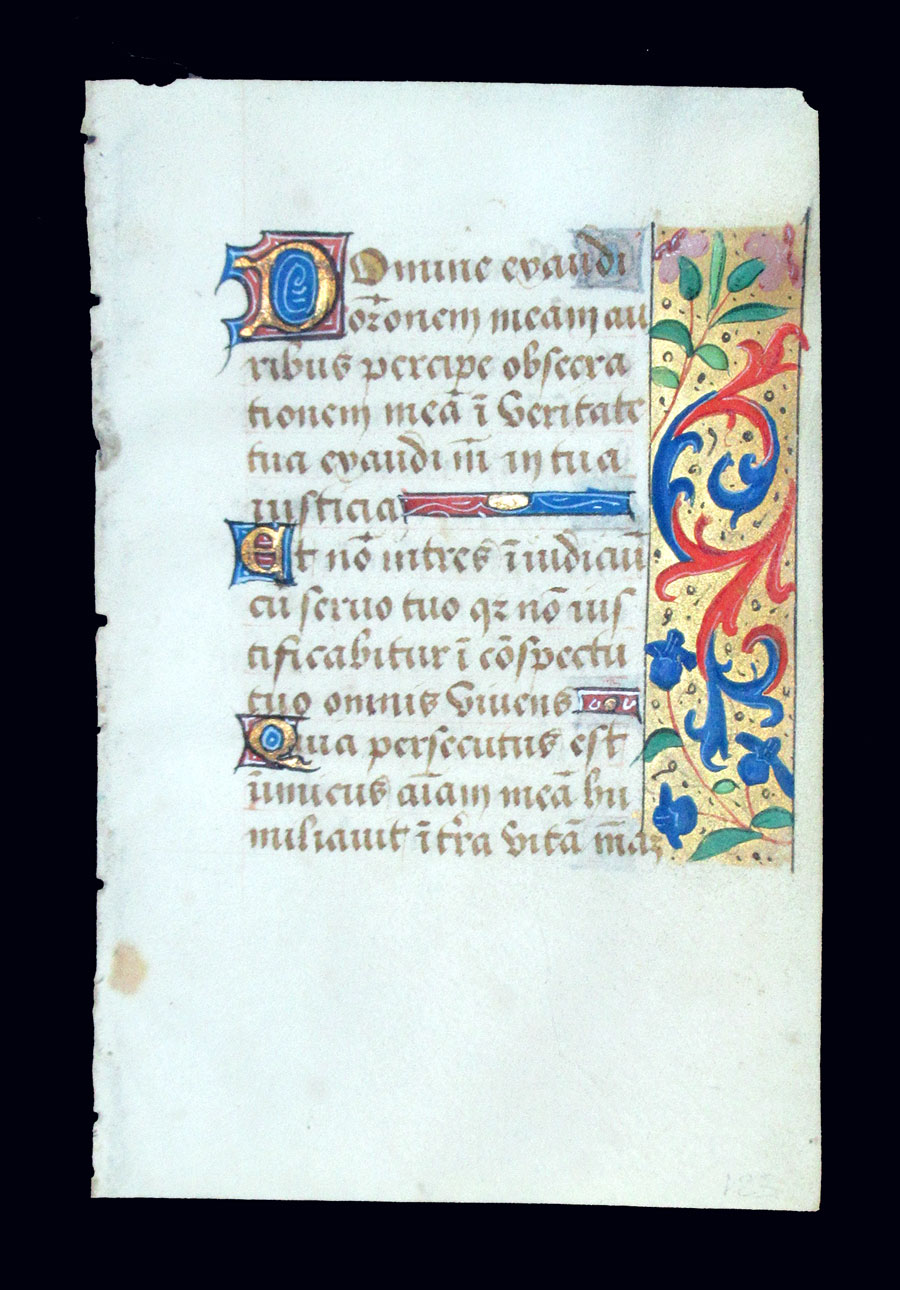 Domine exaudi
or̃onem meam au
ribus percipe obsecra
tionem meã ĩ veritate
tua exaudi m̃ in tua
iusticia
Et nõ intres ĩ iudiciũ
cũ seruo tuo qꝫ nõ ius
tificabitur ĩ cõspectu
tuo omnis viuens
Quia persecutus est
inimicus aĩam meã hu
miliauit ĩ tr̃a vitã m̃aꝫ
123